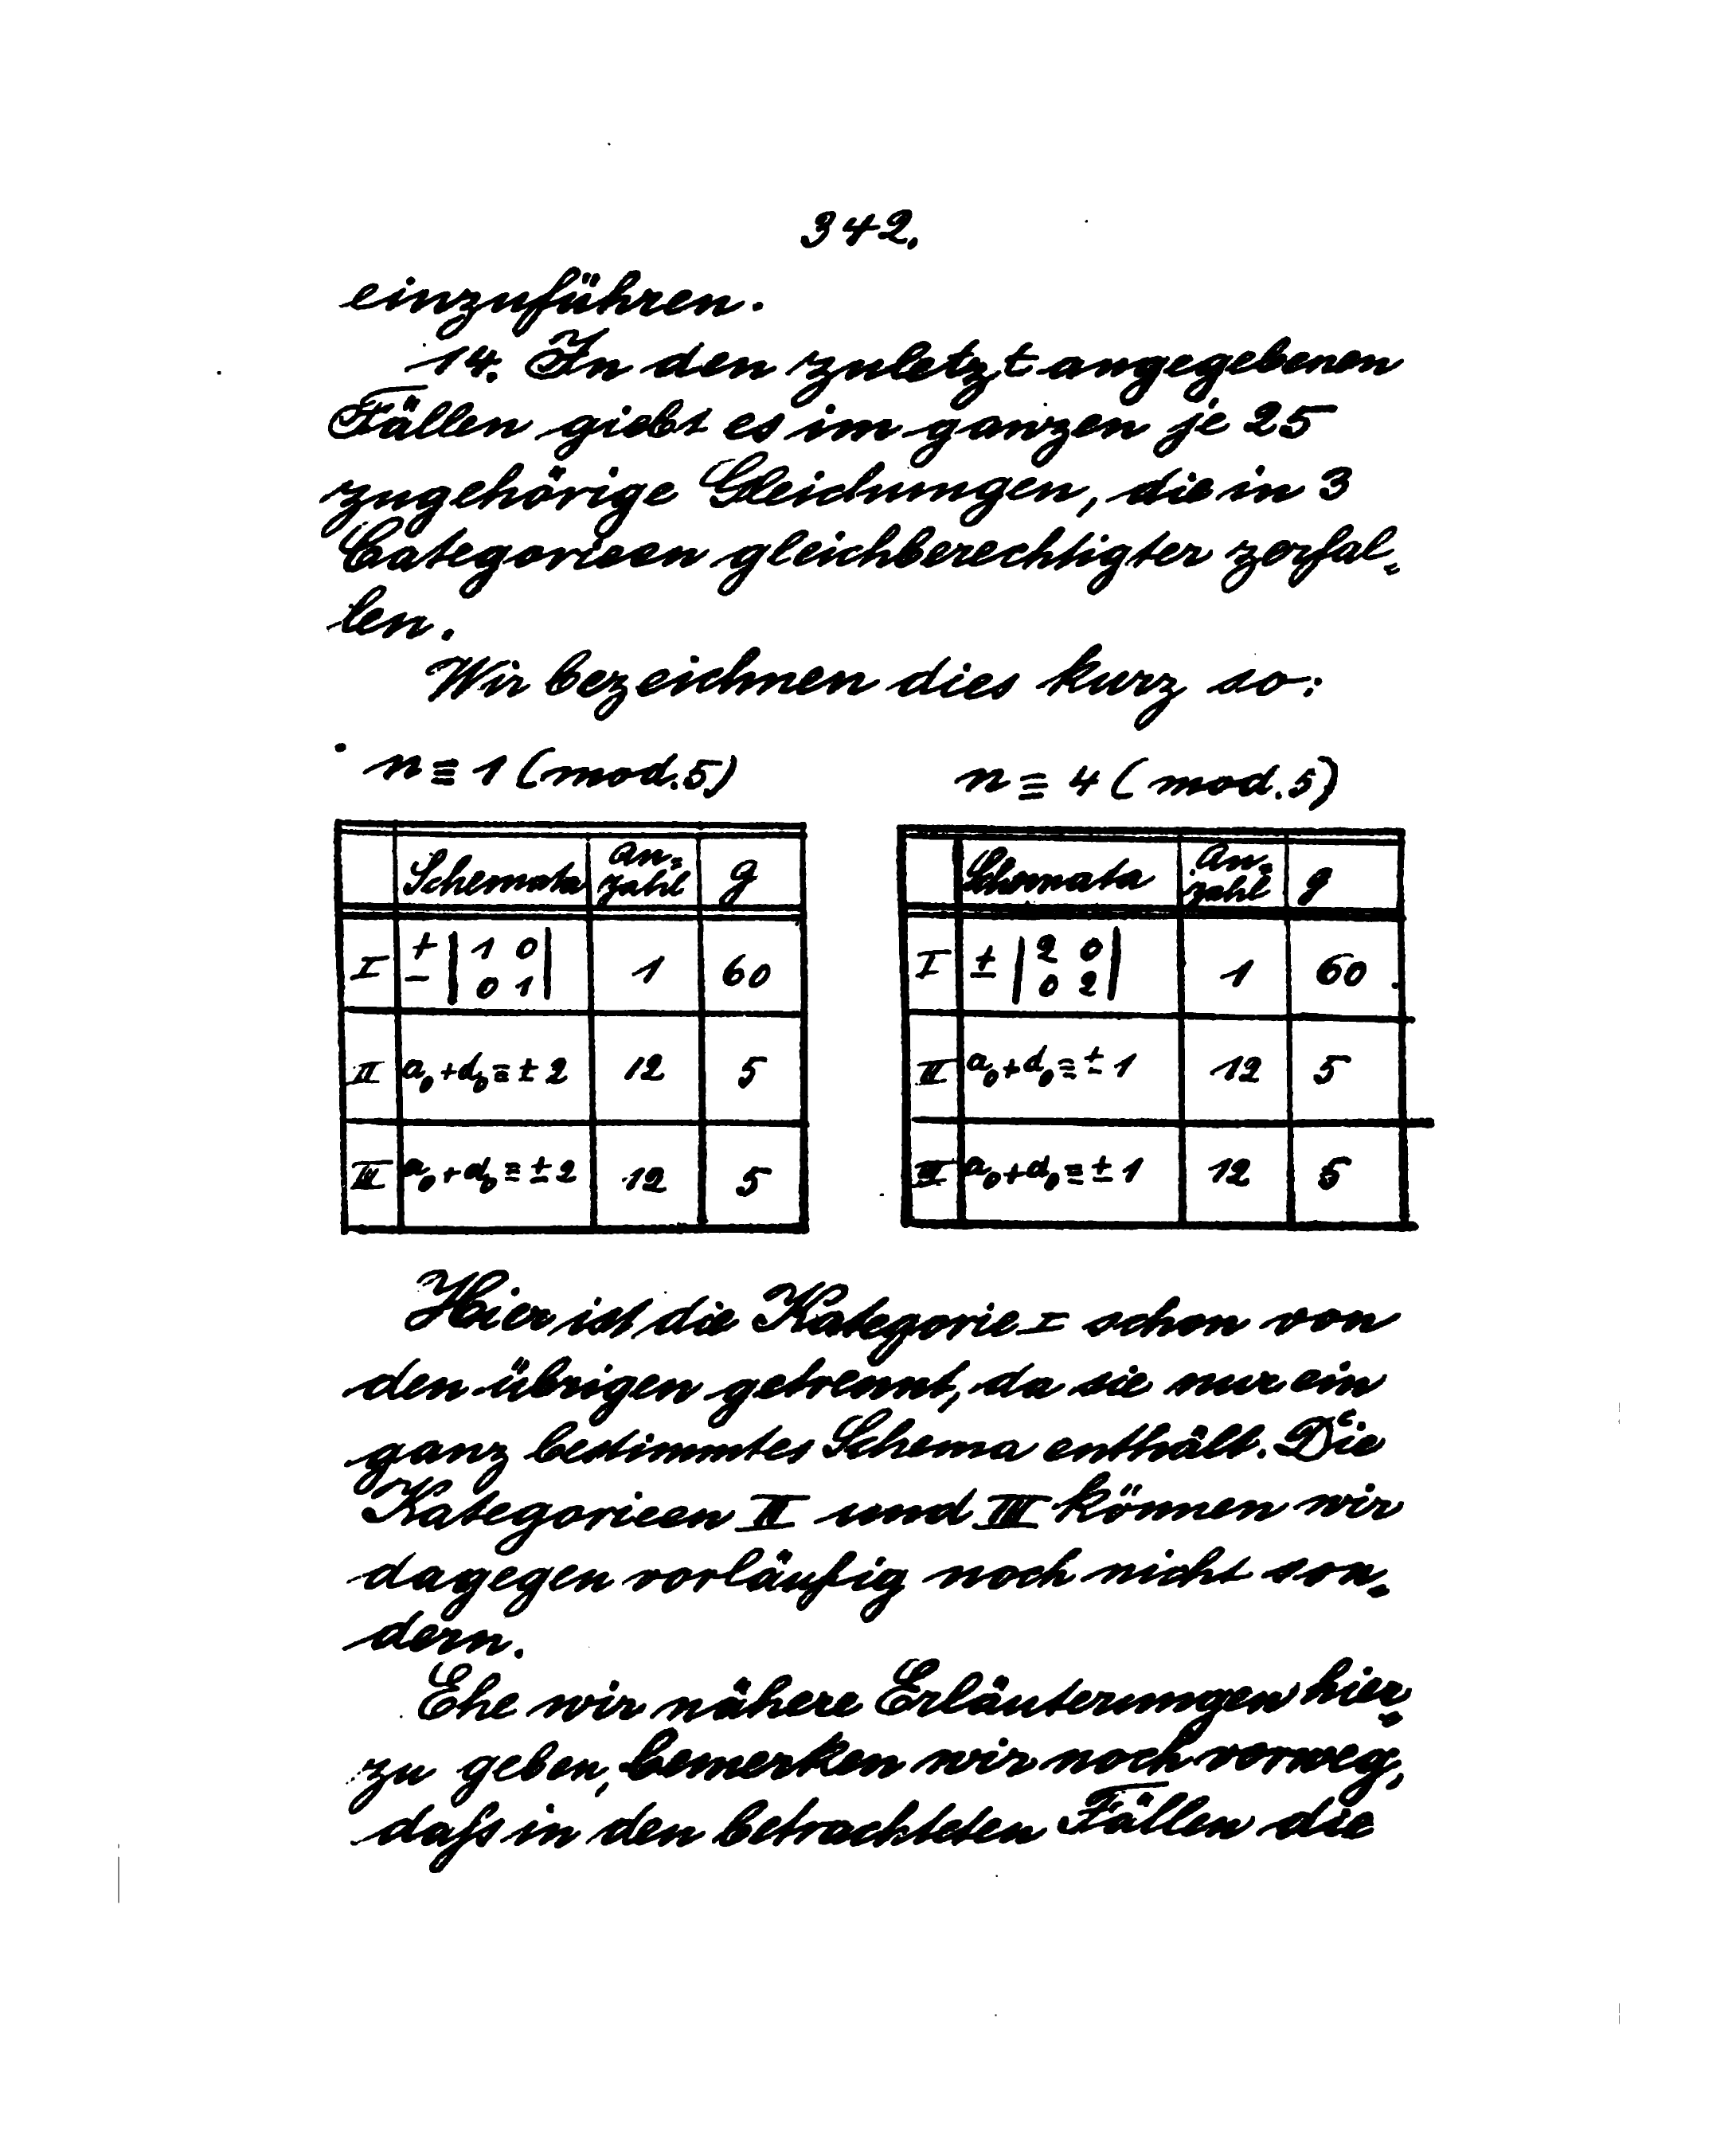 342.
einzuführen.
14. In den zuletzt angegebenen
Fällen giebt es im ganzen je 25
zugehörige Gleichungen, die in 3
Categorieen gleichberechtigter zerfal=
len.
Wir bezeichnen dies kurz so:
n ≡ 1 (mod. 5) n ≡ 4 (mod. 5)
Schemata An= zahl g
I ± | 1 0 0 1 | 1 60
II a₀ + d₀ ≡ ± 2 12 5
III a₀ + d₀ ≡ ± 2 12 5
Schemata An= zahl g
I ± | 2 0 0 2 | 1 60
II a₀ + d₀ ≡ ± 1 12 5
III a₀ + d₀ ≡ ± 1 12 5
Hier ist die Kategorie I schon von
den übrigen getrennt, da sie nur ein
ganz bestimmtes Schema enthält. Die
Kategorieen II und III können wir
dagegen vorläufig noch nicht son=
dern.
Ehe wir nähere Erläuterungen hier=
zu geben, bemerken wir noch vorweg,
daſs in den betrachteten Fällen die